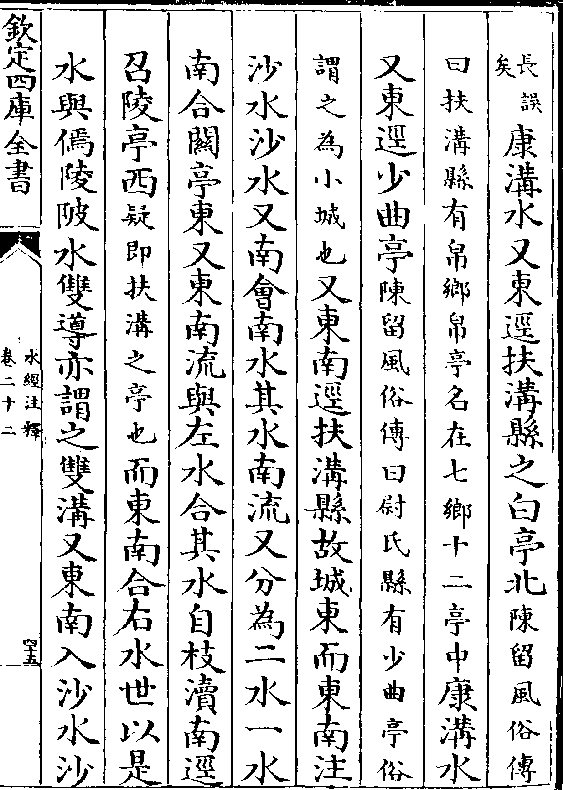 長誤
矣
康溝水又東逕扶溝縣之白亭北陳留風俗傳
曰扶溝縣有帛鄉帛亭名在七鄉十二亭中康溝水
又東逕少曲亭陳留風俗傳曰尉氏縣有少曲亭俗
謂之為小城也又東南逕扶溝縣故城東而東南注
沙水沙水又南會南水其水南流又分為二水一水
南合關亭東又東南流與左水合其水自枝瀆南逕
召陵亭西疑即扶溝之亭也而東南合右水世以是
水與傿陵陂水雙導亦謂之雙溝又東南入沙水沙
欽定四庫全書
水經注釋
卷二十二
四十五